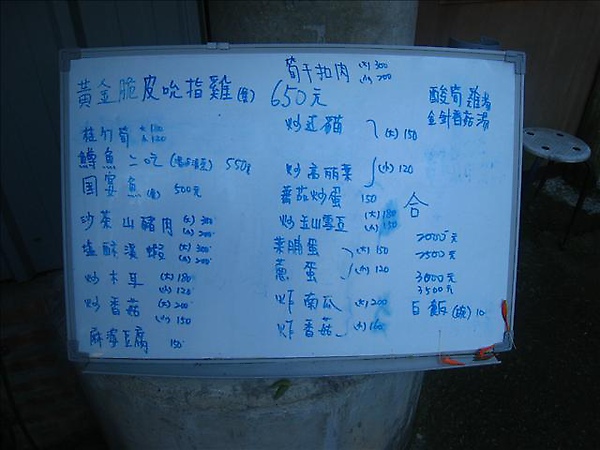 黃金脆皮吮指雞(隻) 650元
桂竹筍 大180
小120
鱒魚二吃 550元
国宴魚(隻) 500元
炒茶山豬肉 (大)300
(小)200
塩酥溪蝦 (大)300
(小)200
炒木耳 (大)180
(小)120
炒香菇 (大)200
(小)150
麻婆豆腐 150
筍干扣肉 (大)300
(小)200
炒过貓 (大)150
炒高丽菜 (小)120
蕃茄炒蛋 150
炒玉山雪豆 (大)180
(小)150
菜脯蛋 (大)150
蔥蛋 (小)120
炸南瓜 (大)200
炸香菇 (小)160
酸筍雞湯
金針香菇湯
合
2000元
2500元
3000元
3500元
白飯(碗) 10